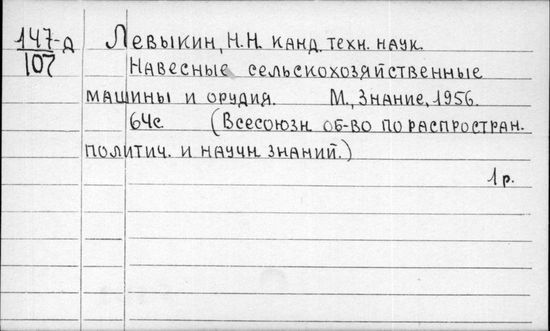 147-д Левыкин, Н.Н. канд. техн. наук.
107 Навесные сельскохозяйственные
машины и орудия. М., Знание, 1956.
64с. (Всесоюзн. об-во по распростран.
политич. и научн. знаний.)
1 р.